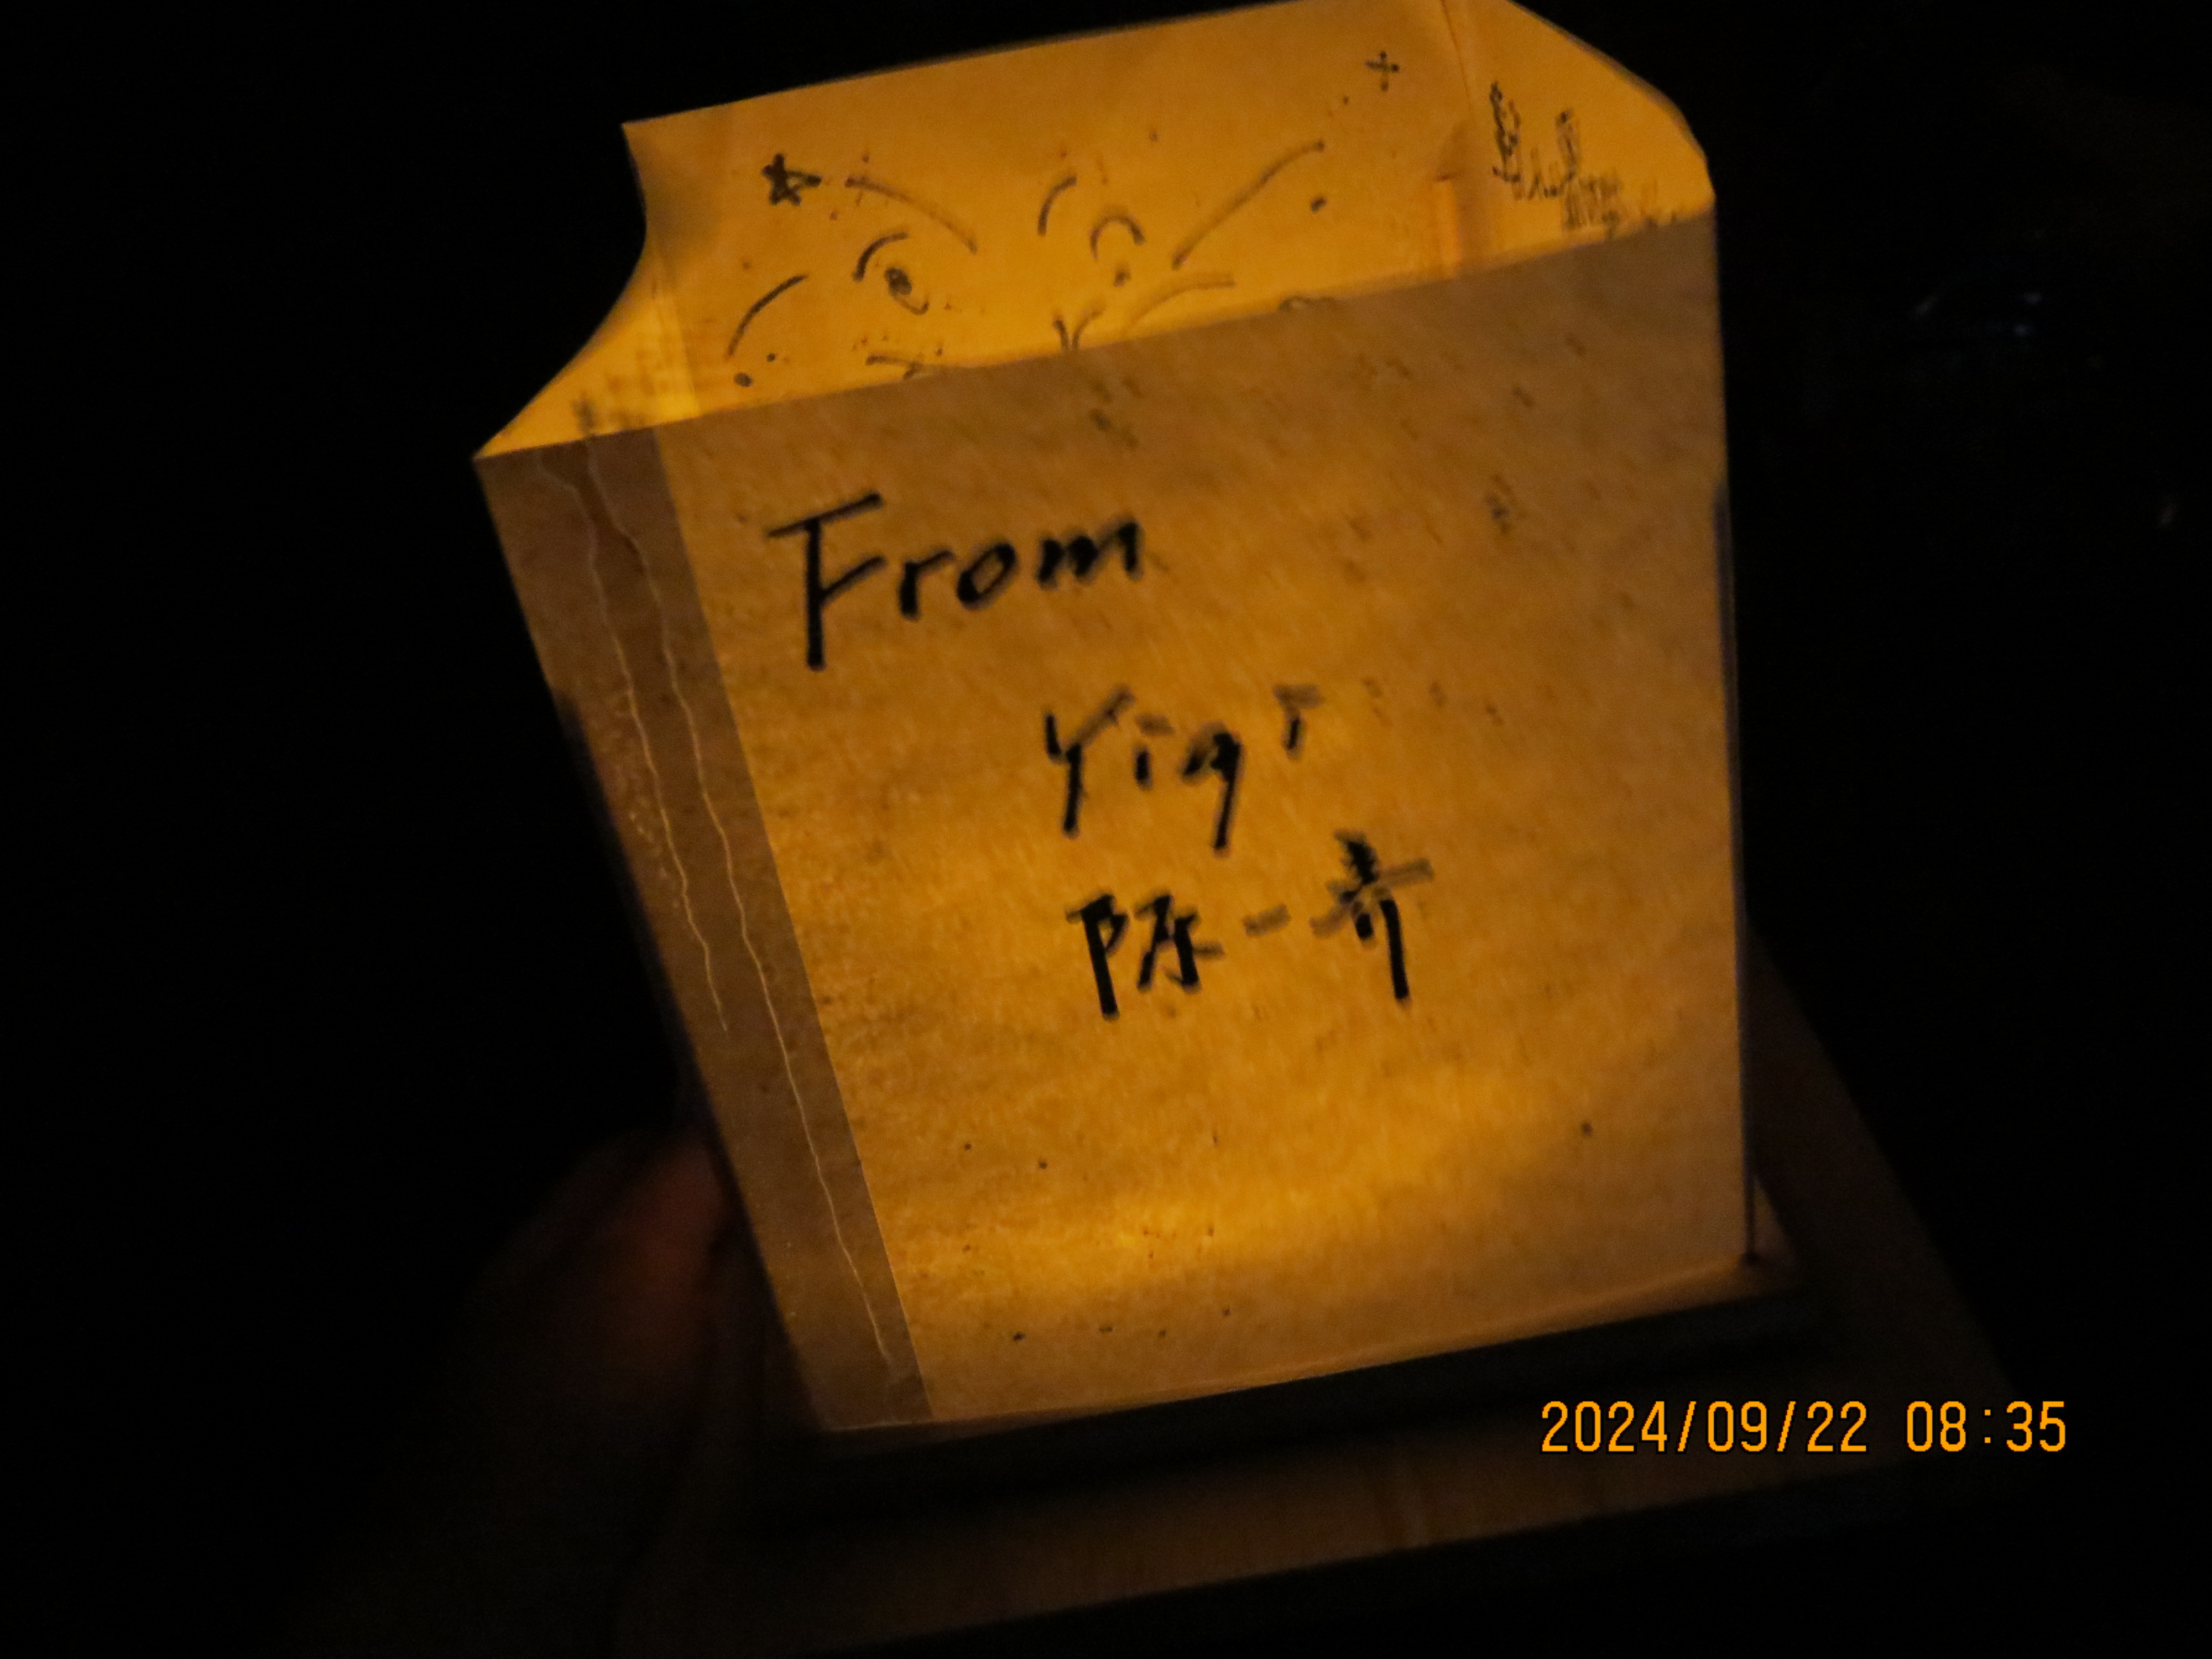 From
Yiqi
陈一奇
2024/09/22 08:35